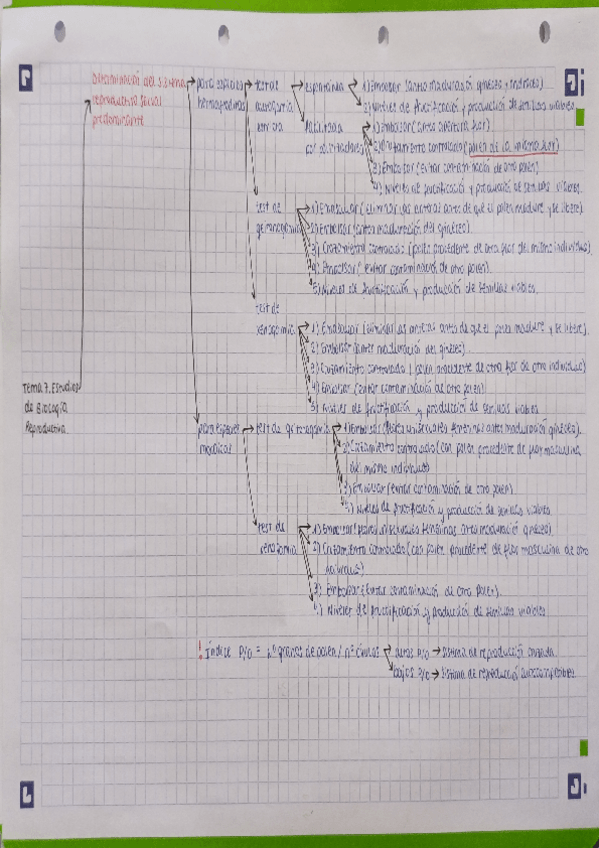 Determinación del sistema
reproductivo sexual
predominante
para especies
hermafroditas
test de
autogamia
espontánea
1) Embolsar (antes maduración gineceo y androceo)
2) Niveles de fructificación y producción de semillas viables
facilitada
por polinizadores
1) Embolsar (antes apertura flor)
2) Tratamiento controlado (polen de la misma flor)
3) Embolsar (evitar contaminación de otro polen)
4) Niveles de fructificación y producción de semillas viables.
test de
geitonogamia
1) Emascular (eliminar las anteras antes de que el polen madure y se libere).
2) Embolsar (antes maduración del gineceo).
3) Cruzamiento controlado (polen procedente de otra flor del mismo individuo).
4) Embolsar (evitar contaminación de otro polen).
5) Niveles de fructificación y producción de semillas viables.
test de
xenogamia
1) Emascular (eliminar las anteras antes de que el polen madure y se libere).
2) Embolsar (antes maduración del gineceo).
3) Cruzamiento controlado (polen procedente de otra flor de otro individuo)
4) Embolsar (evitar contaminación de otro polen)
5) Niveles de fructificación y producción de semillas viables
Tema 7. Estudios
de Biología
Reproductiva
para especies
monoicas
test de geitonogamia
1) Embolsar (flores unisexuales femeninas antes maduración gineceo).
2) Cruzamiento controlado (con polen procedente de flor masculina
del mismo individuo)
3) Embolsar (evitar contaminación de otro polen)
4) Niveles de fructificación y producción de semillas viables
test de
xenogamia
1) Embolsar (flores unisexuales femeninas antes maduración gineceo).
2) Cruzamiento controlado (con polen procedente de flor masculina de otro
individuo)
3) Embolsar (Evitar contaminación de otro polen).
4) Niveles de fructificación y producción de semillas viables
! Índice P/O = nº granos de polen / nº óvulos
altos P/O → sistema de reproducción cruzada.
bajos P/O → sistema de reproducció autocompatibles